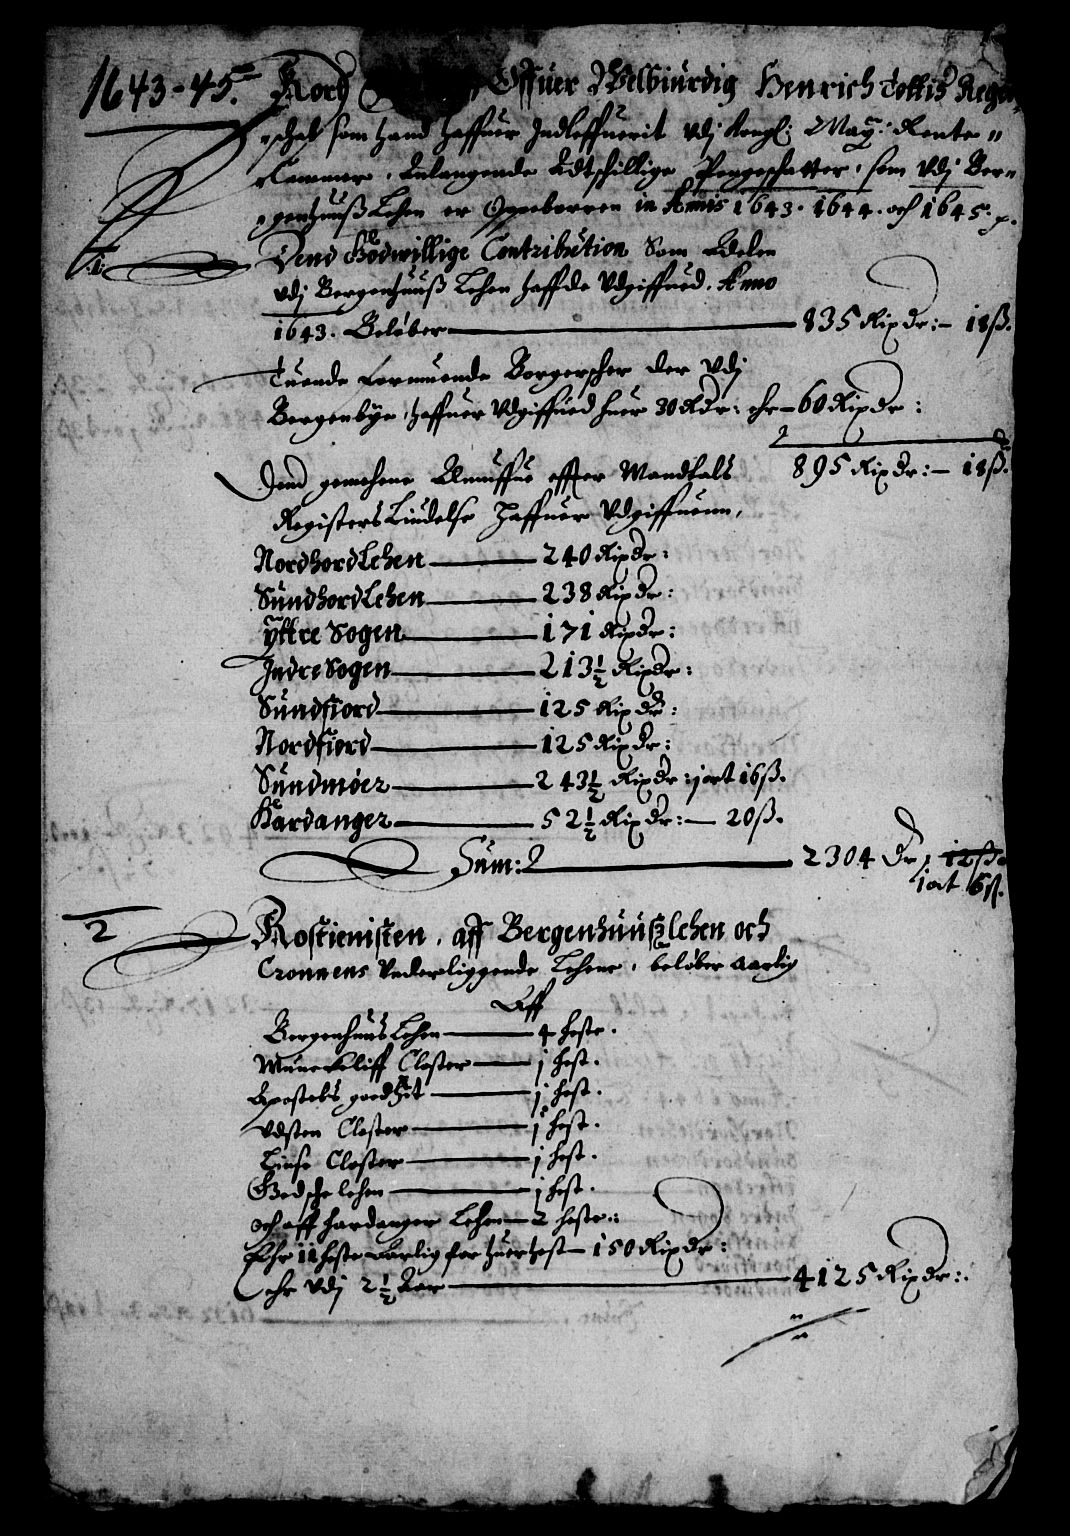 1643-45. Kort Offuer Welbiurdig Henrich Tottis Regen-
schab som hand haffuer Indleffuerit Vdj Kongl: May: Rente
Cammer, Anlangende Adtschillige Pengeschatter, som Vdj Ber-
genhuuß Lehen er Oppeborren in Annis 1643. 1644. och 1645. p.
1. Dend Godwillige Contribution Som Adelen
Vdj Bergenhuuß Lehen haffde Vdgiffued, Anno
1643. Beløber 835 Rixdr:- 18ß.
Tuende formuende Borgersker der Vdj
Bergenbye, haffuer Vdgiffued huer 30 Rdr: ehr- 60 Rixdr:
895 Rixdr:- 18ß.
Dend gemehene Almuffue effter Mandtals
Registers Liudelse haffuer Vdgiffuenn,
NordhordLehen 240 Rixdr:
SundhordLehen 238 Rixdr:
Ÿttre Sogen 171 Rixdr:
Indre Sogen 213½ Rixdr:
Sundfiord 125 Rixdr:
Nordfiord 125 Rixdr:
Sundmøer 243½ Rixdr: j ort 16ß.
Hardanger 52½ Rixdr:- 20ß.
Sum: 2304 dr, 12ß
1 ort 6ß.
2 Rostienisten, aff Bergenhuußlehen och
Cronnens Vnderliggende Lehene, beløber Aarlig
Aff
Bergenhuus Lehen 4 heste.
Munckeliff Closter j hest.
Apostels goedzit j hest.
Vdsten Closter j hest.
Liuse Closter j hest.
Giedsche lehen j hest.
och aff Hardanger Lehen 2 heste::
Ehr 11 heste Aarlig for huer hest- 150 Rixdr:
ehr Vdj 2½ Aar 4125 Rixdr::